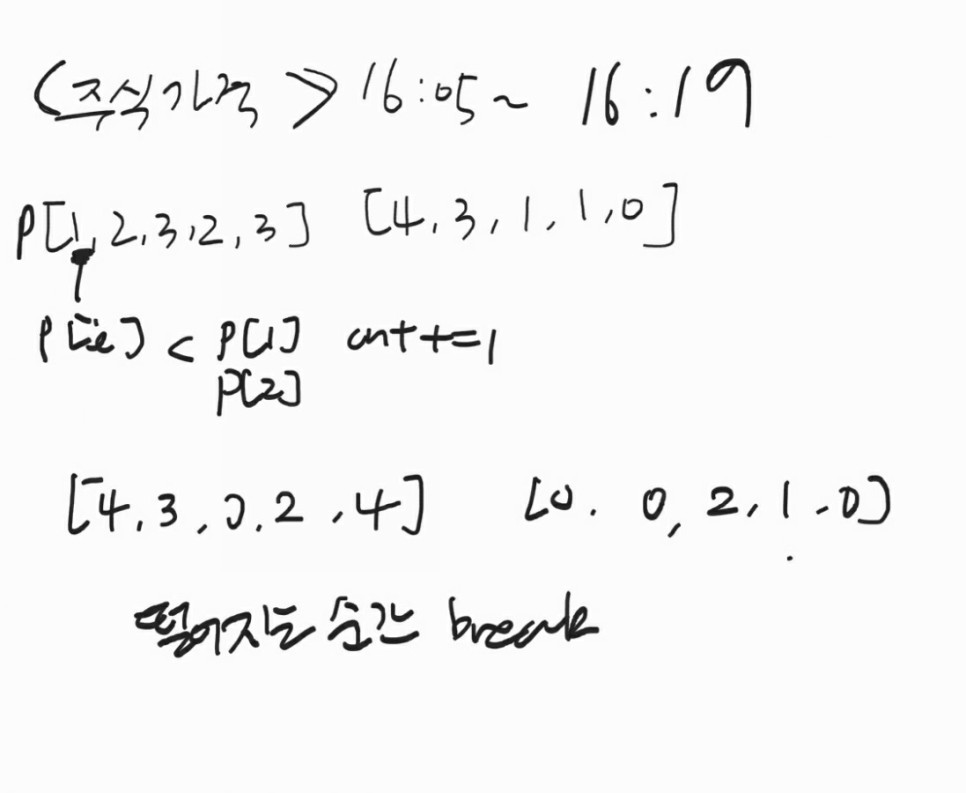 <주식가격> 16:05~ 16:19
P[1,2,3,2,3] [4,3,1,1,0]
P[i] < P[1] cnt+=1
P[2]
[4,3,0,2,4] [0, 0, 2, 1, 0]
떨어지는 순간 break